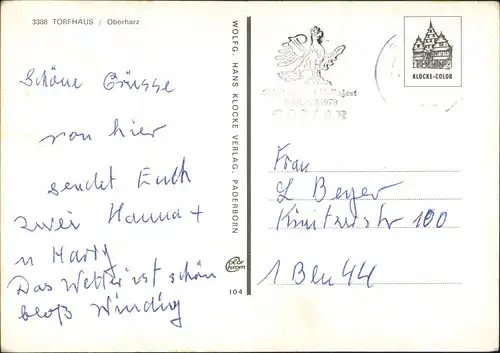 3388 TORFHAUS / Oberharz
Schöne Grüsse
von hier
sendet Euch
zwei Hanna +
u Harry
Das Wetter ist schön
bloß Windig
WOLFG. HANS KLOCKE VERLAG, PADERBORN
color chrom
104
1979
GOSLAR
KLOCKE-COLOR
Frau
L Beyer
100
1 Bln 44